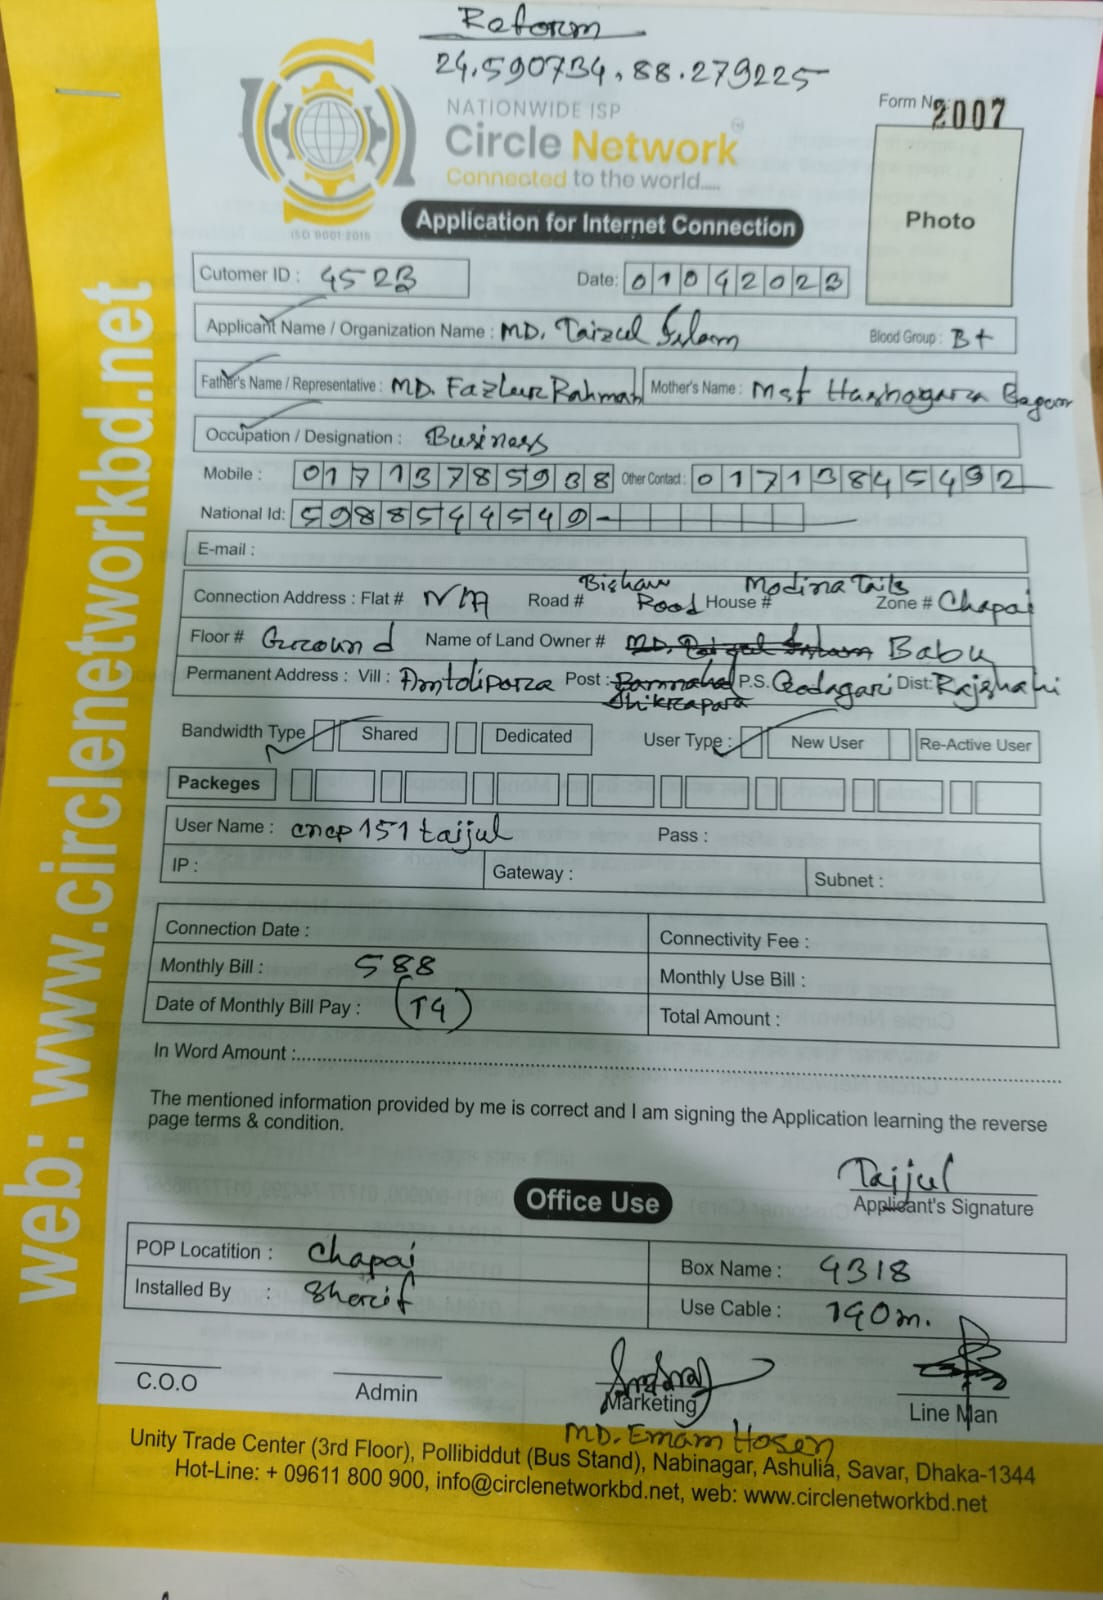 Reform
24.590734, 88.279225
NATIONWIDE ISP
Circle Network
Connected to the world.....
ISO 9001:2015
Form No: 2007
Photo
Application for Internet Connection
Cutomer ID : 4523 Date: 01042023
Applicant Name / Organization Name : MD. Taizul Islam Blood Group : B+
Father's Name / Representative : MD. Fazlur Rahman Mother's Name : Mst Hashogara Begom
Occupation / Designation : Business
Mobile : 01713785938 Other Contact : 01713845492
National Id: 5988544549
E-mail :
Connection Address : Flat # N/A Road # Bishaw Road House # Modina Tails Zone # Chapai
Floor # Ground Name of Land Owner # Babu
Permanent Address : Vill : Amtolipara Post : P.S. Godagari Dist: Rajshahi
Bandwidth Type Shared Dedicated User Type : New User Re-Active User
Packeges
User Name : cncp151taijul Pass :
IP : Gateway : Subnet :
Connection Date : Connectivity Fee :
Monthly Bill : 588 Monthly Use Bill :
Date of Monthly Bill Pay : (T4) Total Amount :
In Word Amount :
The mentioned information provided by me is correct and I am signing the Application learning the reverse
page terms & condition.
Taijul
Applicant's Signature
Office Use
POP Locatition : Chapai Box Name : 4318
Installed By : Sharif Use Cable : 190m.
C.O.O Admin Marketing Line Man
MD. Emam Hosen
Unity Trade Center (3rd Floor), Pollibiddut (Bus Stand), Nabinagar, Ashulia, Savar, Dhaka-1344
Hot-Line: + 09611 800 900, info@circlenetworkbd.net, web: www.circlenetworkbd.net
web: www.circlenetworkbd.net